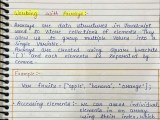 Working with Arrays:
Arrays are data structures in JavaScript
used to store collections of elements. They
allow us to group multiple values into a
Single Variable.
Arrays are created using square brackets
'[ ]' and each element is separated by
Comma.
Example:-
Var fruits = ["apple", "banana", "orange"];
Accessing elements:- we can access individual
elements in an array using